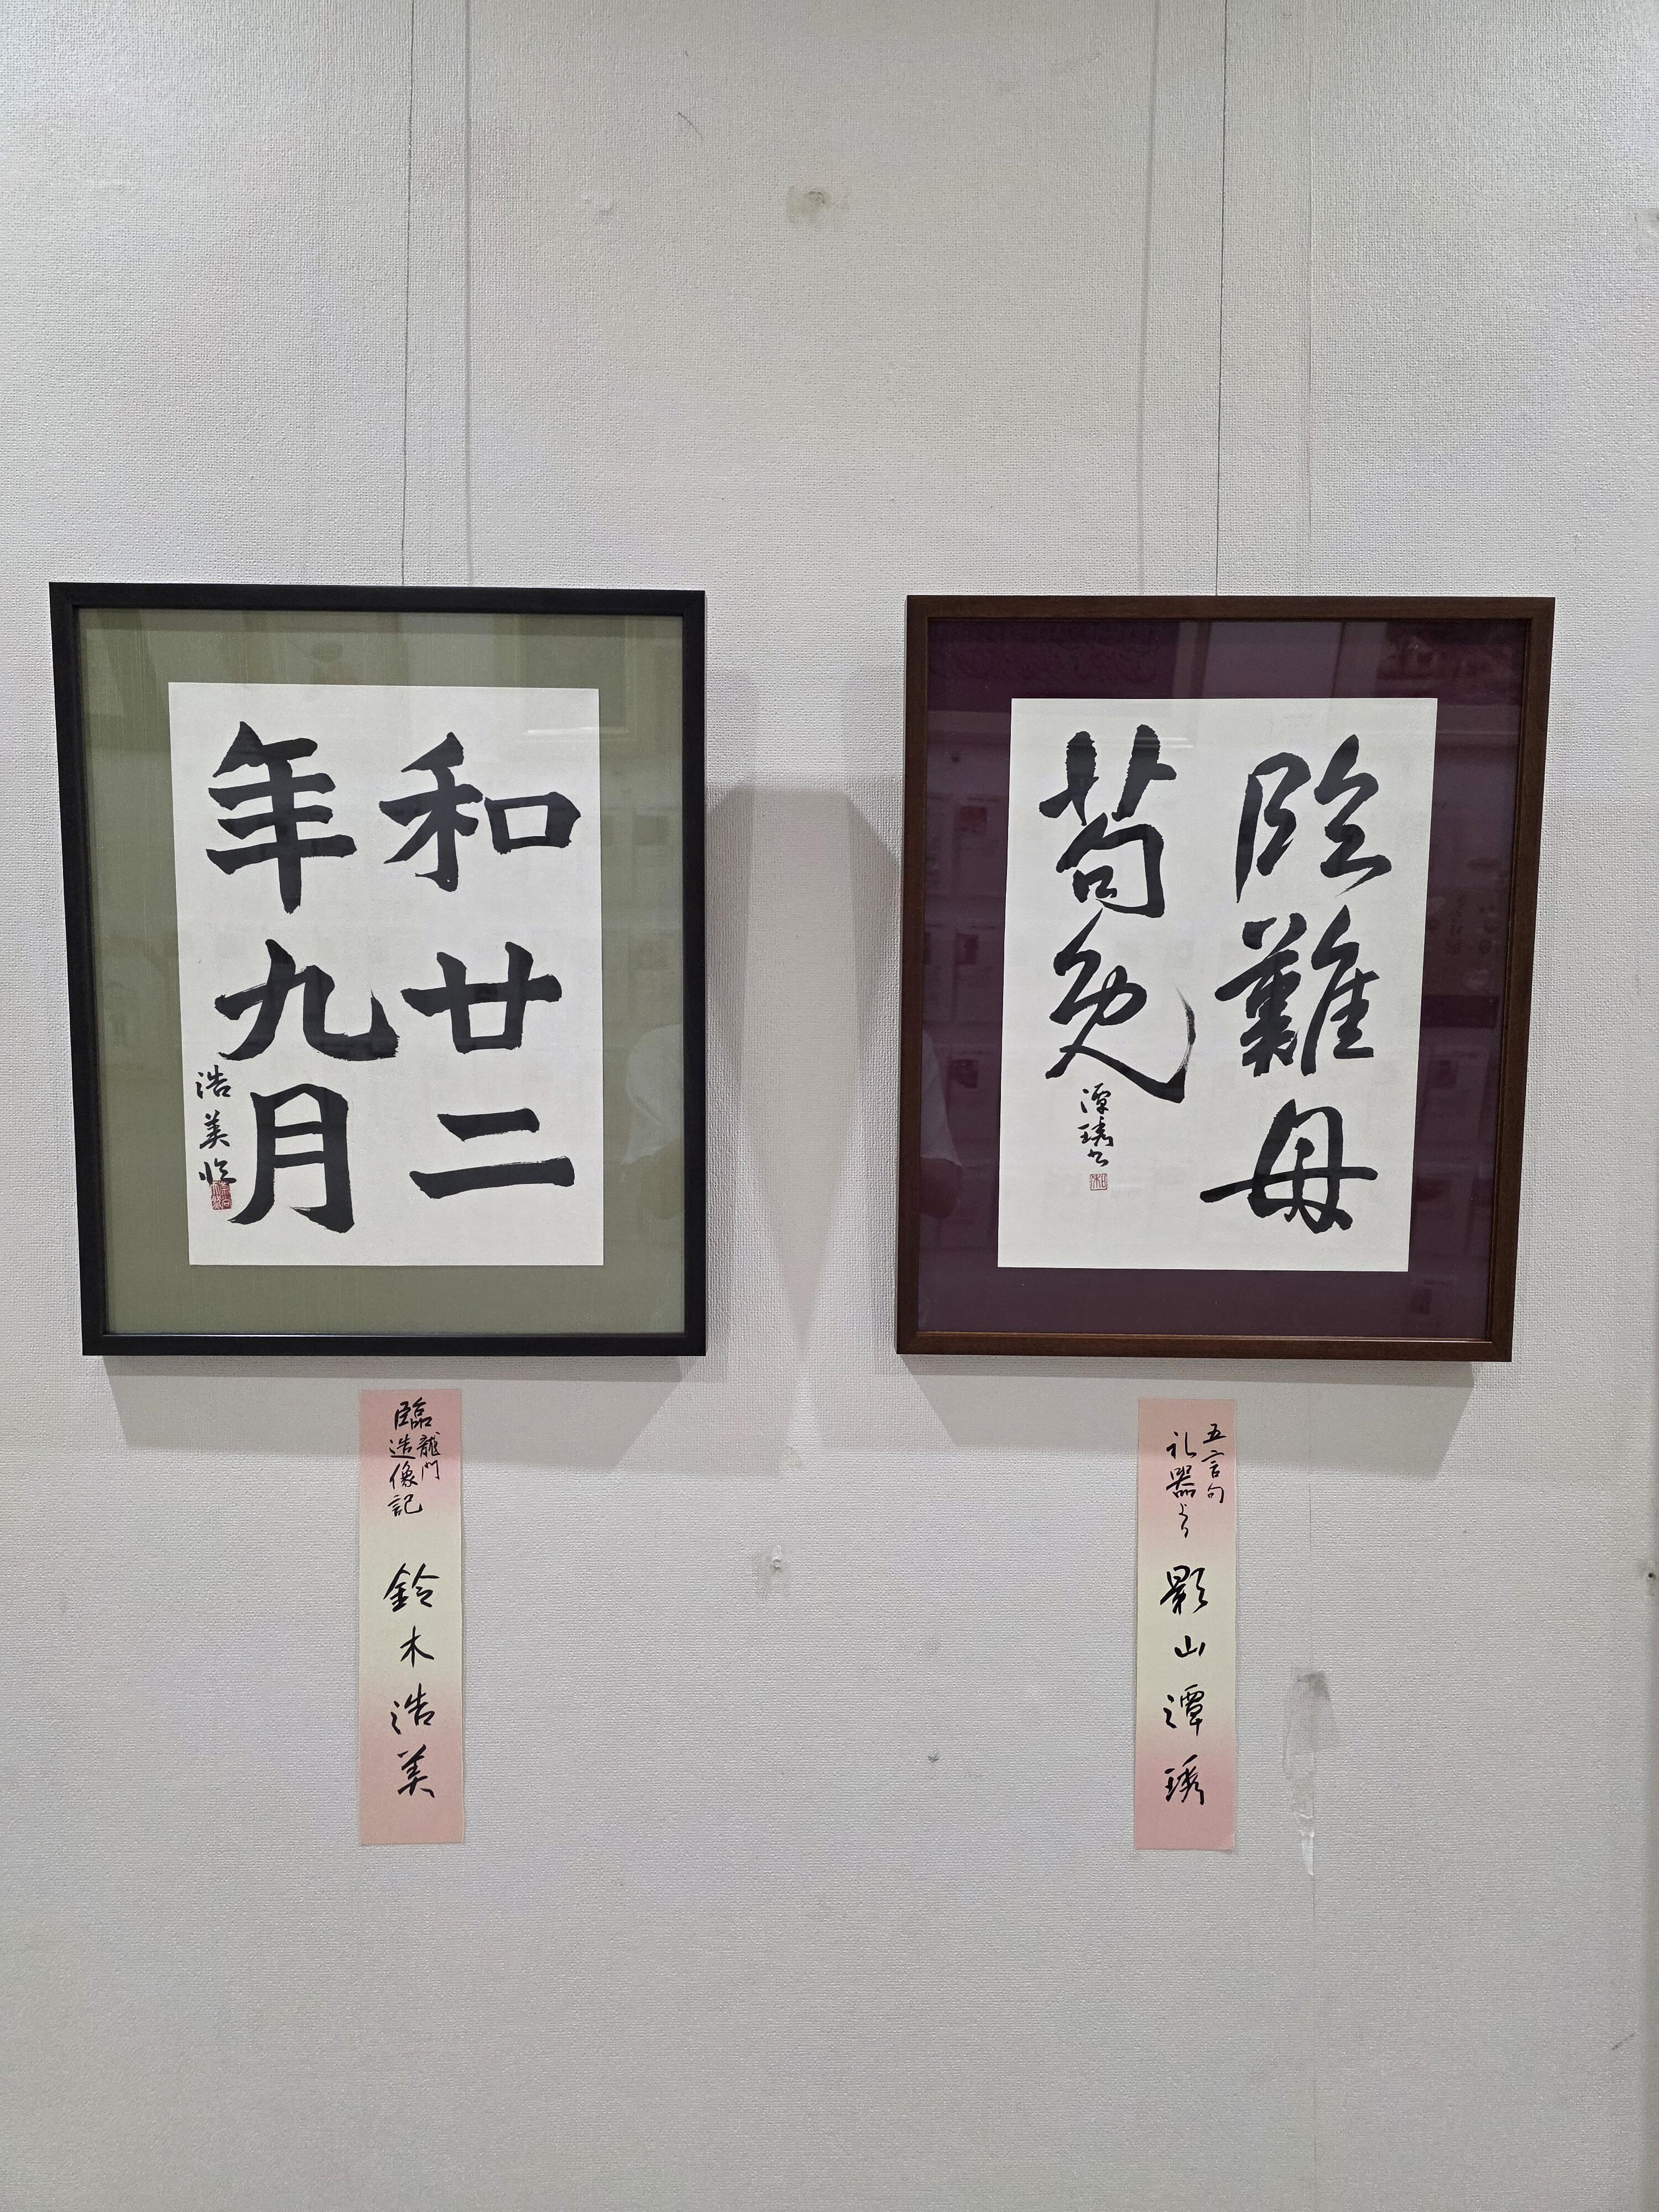 臨難母
苟免
潭琇書
和廿二
年九月
浩美臨
五言句
礼器より
影山潭琇
臨龍門
造像記
鈴木浩美